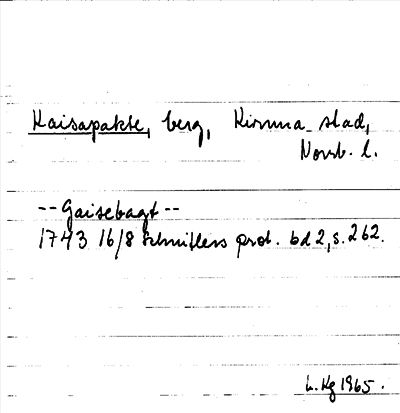 Kaisapakte, berg, Kiruna stad,
Norrb. l.
-- Gaisebagt --
1743 16/8 Schnitlers prot. bd 2, s. 262.
L. Hg 1965.